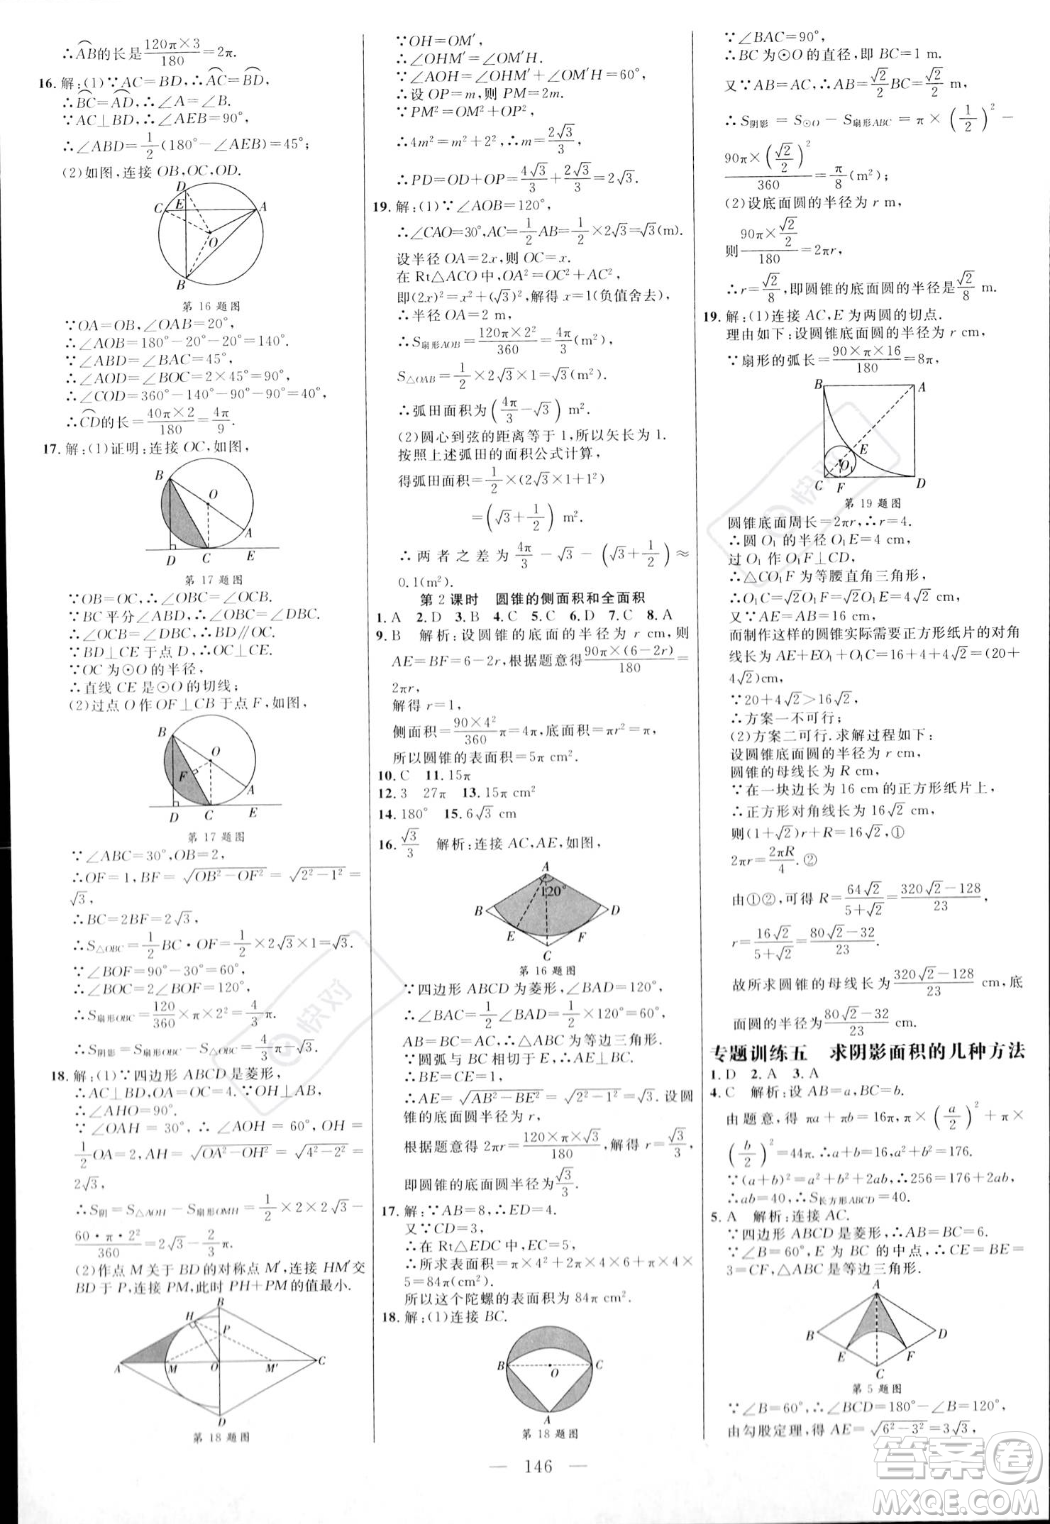 ∴⌒AB的长是120π×3/180=2π.
16. 解:(1)∵⌒AC=⌒BD,∴⌒AC=⌒BD.
∴⌒BC=⌒AD,∴∠A=∠B.
∵AC⊥BD,∴∠AEB=90°,
∴∠ABD=1/2(180°-∠AEB)=45°;
(2)如图,连接OB,OC,OD.
D
C E A
O
B
第16题图
∵OA=OB,∠OAB=20°,
∴∠AOB=180°-20°-20°=140°.
∵∠ABD=∠BAC=45°,
∴∠AOD=∠BOC=2∠BAC=90°,
∴∠COD=360°-140°-90°-90°=40°,
∴⌒CD的长=40π×2/180=4π/9.
17. 解:(1)证明:连接OC,如图,
B
O
A
D C E
第17题图
∵OB=OC,∴∠OBC=∠OCB.
∵BC平分∠ABD,∴∠OBC=∠DBC.
∴∠OCB=∠DBC.∴OC∥BD.
∵BD⊥CE于点D,∴OC⊥DE.
∵OC为⊙O的半径,
∴直线CE是⊙O的切线;
(2)过点O作OF⊥CB于点F,如图,
B
O
F
A
D C E
第17题图
∵∠ABC=30°,OB=2,
∴OF=1,BF=√(OB²-OF²)=√(2²-1²)=
√3.
∴BC=2BF=2√3,
∴S△OBC=1/2BC·OF=1/2×2√3×1=√3.
∵∠BOF=90°-30°=60°,
∴∠BOC=2∠BOF=120°,
∴S扇形OBC=120/360×π×2²=4π/3.
∴S阴影=S扇形OBC-S△OBC=4π/3-√3.
18. 解:(1)∵四边形ABCD是菱形,
∴AC⊥BD,∴OA=OC=4.∵OH⊥AB,
∴∠AHO=90°.
∵∠OAH=30°,∴∠AOH=60°,OH=
1/2OA=2,AH=√(OA²-OH²)=√(4²-2²)=
2√3.
∴S阴=S△AOH-S扇形OMH=1/2×2×2√3-
60·π·2²/360=2√3-2π/3.
(2)作点M关于BD的对称点M′,连接HM′交
BD于P,连接PM,此时PH+PM的值最小.
B
H
P
A M O M′ C
D
第18题图
∵OH=OM′,
∴∠OHM′=∠OM′H.
∵∠AOH=∠OHM′+∠OM′H=60°,
∴设OP=m,则PM=2m.
∵PM²=OP²+OM²,
∴4m²=m²+2²,∴m=2√3/3.
∴PD=OD+OP=4√3/3+2√3/3=2√3.
19. 解:(1)∵∠AOB=120°,
∴∠CAO=30°,AC=1/2AB=1/2×2√3=√3(m).
设半径OA=2x,则OC=x.
在Rt△ACO中,OA²=OC²+AC²,
即(2x)²=x²+(√3)²,解得x=1(负值舍去),
∴半径OA=2 m,
∴S扇形AOB=120π×2²/360=4π/3,
S△OAB=1/2×2√3×1=√3.
∴弧田面积为(4π/3-√3) m².
(2)圆心到弦的距离等于1,所以矢长为1.
按照上述弧田的面积公式计算,
得弧田面积=1/2×(2√3×1+1²)
=(√3+1/2) m².
∴两者之差为4π/3-√3-(√3+1/2)≈
0.1(m²).
第2课时 圆锥的侧面积和全面积
1. A 2. D 3. B 4. C 5. C 6. D 7. C 8. A
9. B 解析:设圆锥的底面的半径为r,则
AE=BF=6-2r,根据题意得90π×(6-2r)/180=
2πr,
解得r=1,
侧面积=90×4²/360π=4π,底面积=π,
所以圆锥的表面积=5π cm².
10. C 11. 15π
12. 3 27π 13. 15π cm²
14. 180° 15. 6√3 cm
16. √3/3 解析:连接AC,AE,如图,
A
120°
B D
E F
C
第16题图
∵四边形ABCD为菱形,∠BAD=120°,
∴∠BAC=1/2∠BAD=1/2×120°=60°.
∵AB=BC=AC,∴△ABC为等边三角形.
∵⌒EF与BC相切于点E,∴AE⊥BC.
∴BE=CE=1.
∴AE=√(AB²-BE²)=√(2²-1²)=√3.设圆
锥的底面圆半径为r,
根据题意得2πr=120×π×√3/180,解得r=√3/3,
即圆锥的底面圆半径为√3/3.
17. 解:∵AB=8,∴ED=4.
又∵CD=3,
∴在Rt△EDC中,EC=5.
∴所求表面积=π×4×5+8π×6+π×4²=20π+48π+16π=
84π(cm²).
所以这个陀螺的表面积为84π cm².
18. 解:(1)连接BC.
B O C
A
第18题图
∵∠BAC=90°,
∴BC为⊙O的直径,即BC=1 m.
又∵AB=AC,∴AB=√2/2BC=√2/2 m.
∴S阴影=S⊙O-S扇形ABC=π×(1/2)²-
90π×(√2/2)²/360=π/8(m²).
(2)设底面圆的半径为r m,
则90π×√2/2/180=2πr,
∴r=√2/8,即圆锥的底面圆的半径是√2/8 m.
19. 解:(1)连接AC,E为两圆的切点.
理由如下:设圆锥底面圆的半径为r cm,
∵扇形的弧长=90×π×16/180=8π,
B A
E
O₁
C F D
第19题图
圆锥底面周长=2πr,∴r=4.
∴圆O₁的半径O₁E=4 cm,
过O₁作O₁F⊥CD,
∴△CO₁F为等腰三角形,
∴O₁C=√2O₁F=√2O₁E=4√2 cm.
又∵AE=16 cm,
而制作这样的圆锥实际需要正方形纸片的对角
线长为AE+EO₁+O₁C=16+4+4√2=(20+
4√2)cm.
∵20+4√2>16√2,
∴方案一不可行;
(2)方案二可行.求解过程如下:
设圆锥底面圆的半径为r cm,
圆锥的母线长为R cm,
∵在一块边长为16 cm的正方形纸片上,
∴正方形对角线长为16√2 cm,
则(1+√2)r+R=16√2,①
2πr=2πR/4.②
由①②,可得R=64√2/(5+√2)=(320√2-128)/23,
r=16√2/(5+√2)=(80√2-32)/23.
故所求圆锥的母线长为(320√2-128)/23cm,底
面圆的半径为(80√2-32)/23cm.
专题训练五 求阴影面积的几种方法
1. D 2. A 3. A
4. C 解析:设AB=a,BC=b.
由题意,得πa+πb=16π,π×(a/2)²+π×
(b/2)²=44π.∴a+b=16,a²+b²=176.
∵(a+b)²=a²+b²+2ab,∴256=176+2ab,
∴ab=40,∴S长方形ABCD=40.
5. A 解析:连接AC.
∵四边形ABCD是菱形,∴AB=BC=6.
∵∠B=60°,E为BC的中点,∴CE=BE=
3=CF.△ABC是等边三角形.
A
B D
E F
C
第5题图
∵∠B=60°,∴∠BCD=180°-∠B=120°.
由勾股定理,得AE=√(6²-3²)=3√3,
146
快对
快对
答案圈
MXQE.COM